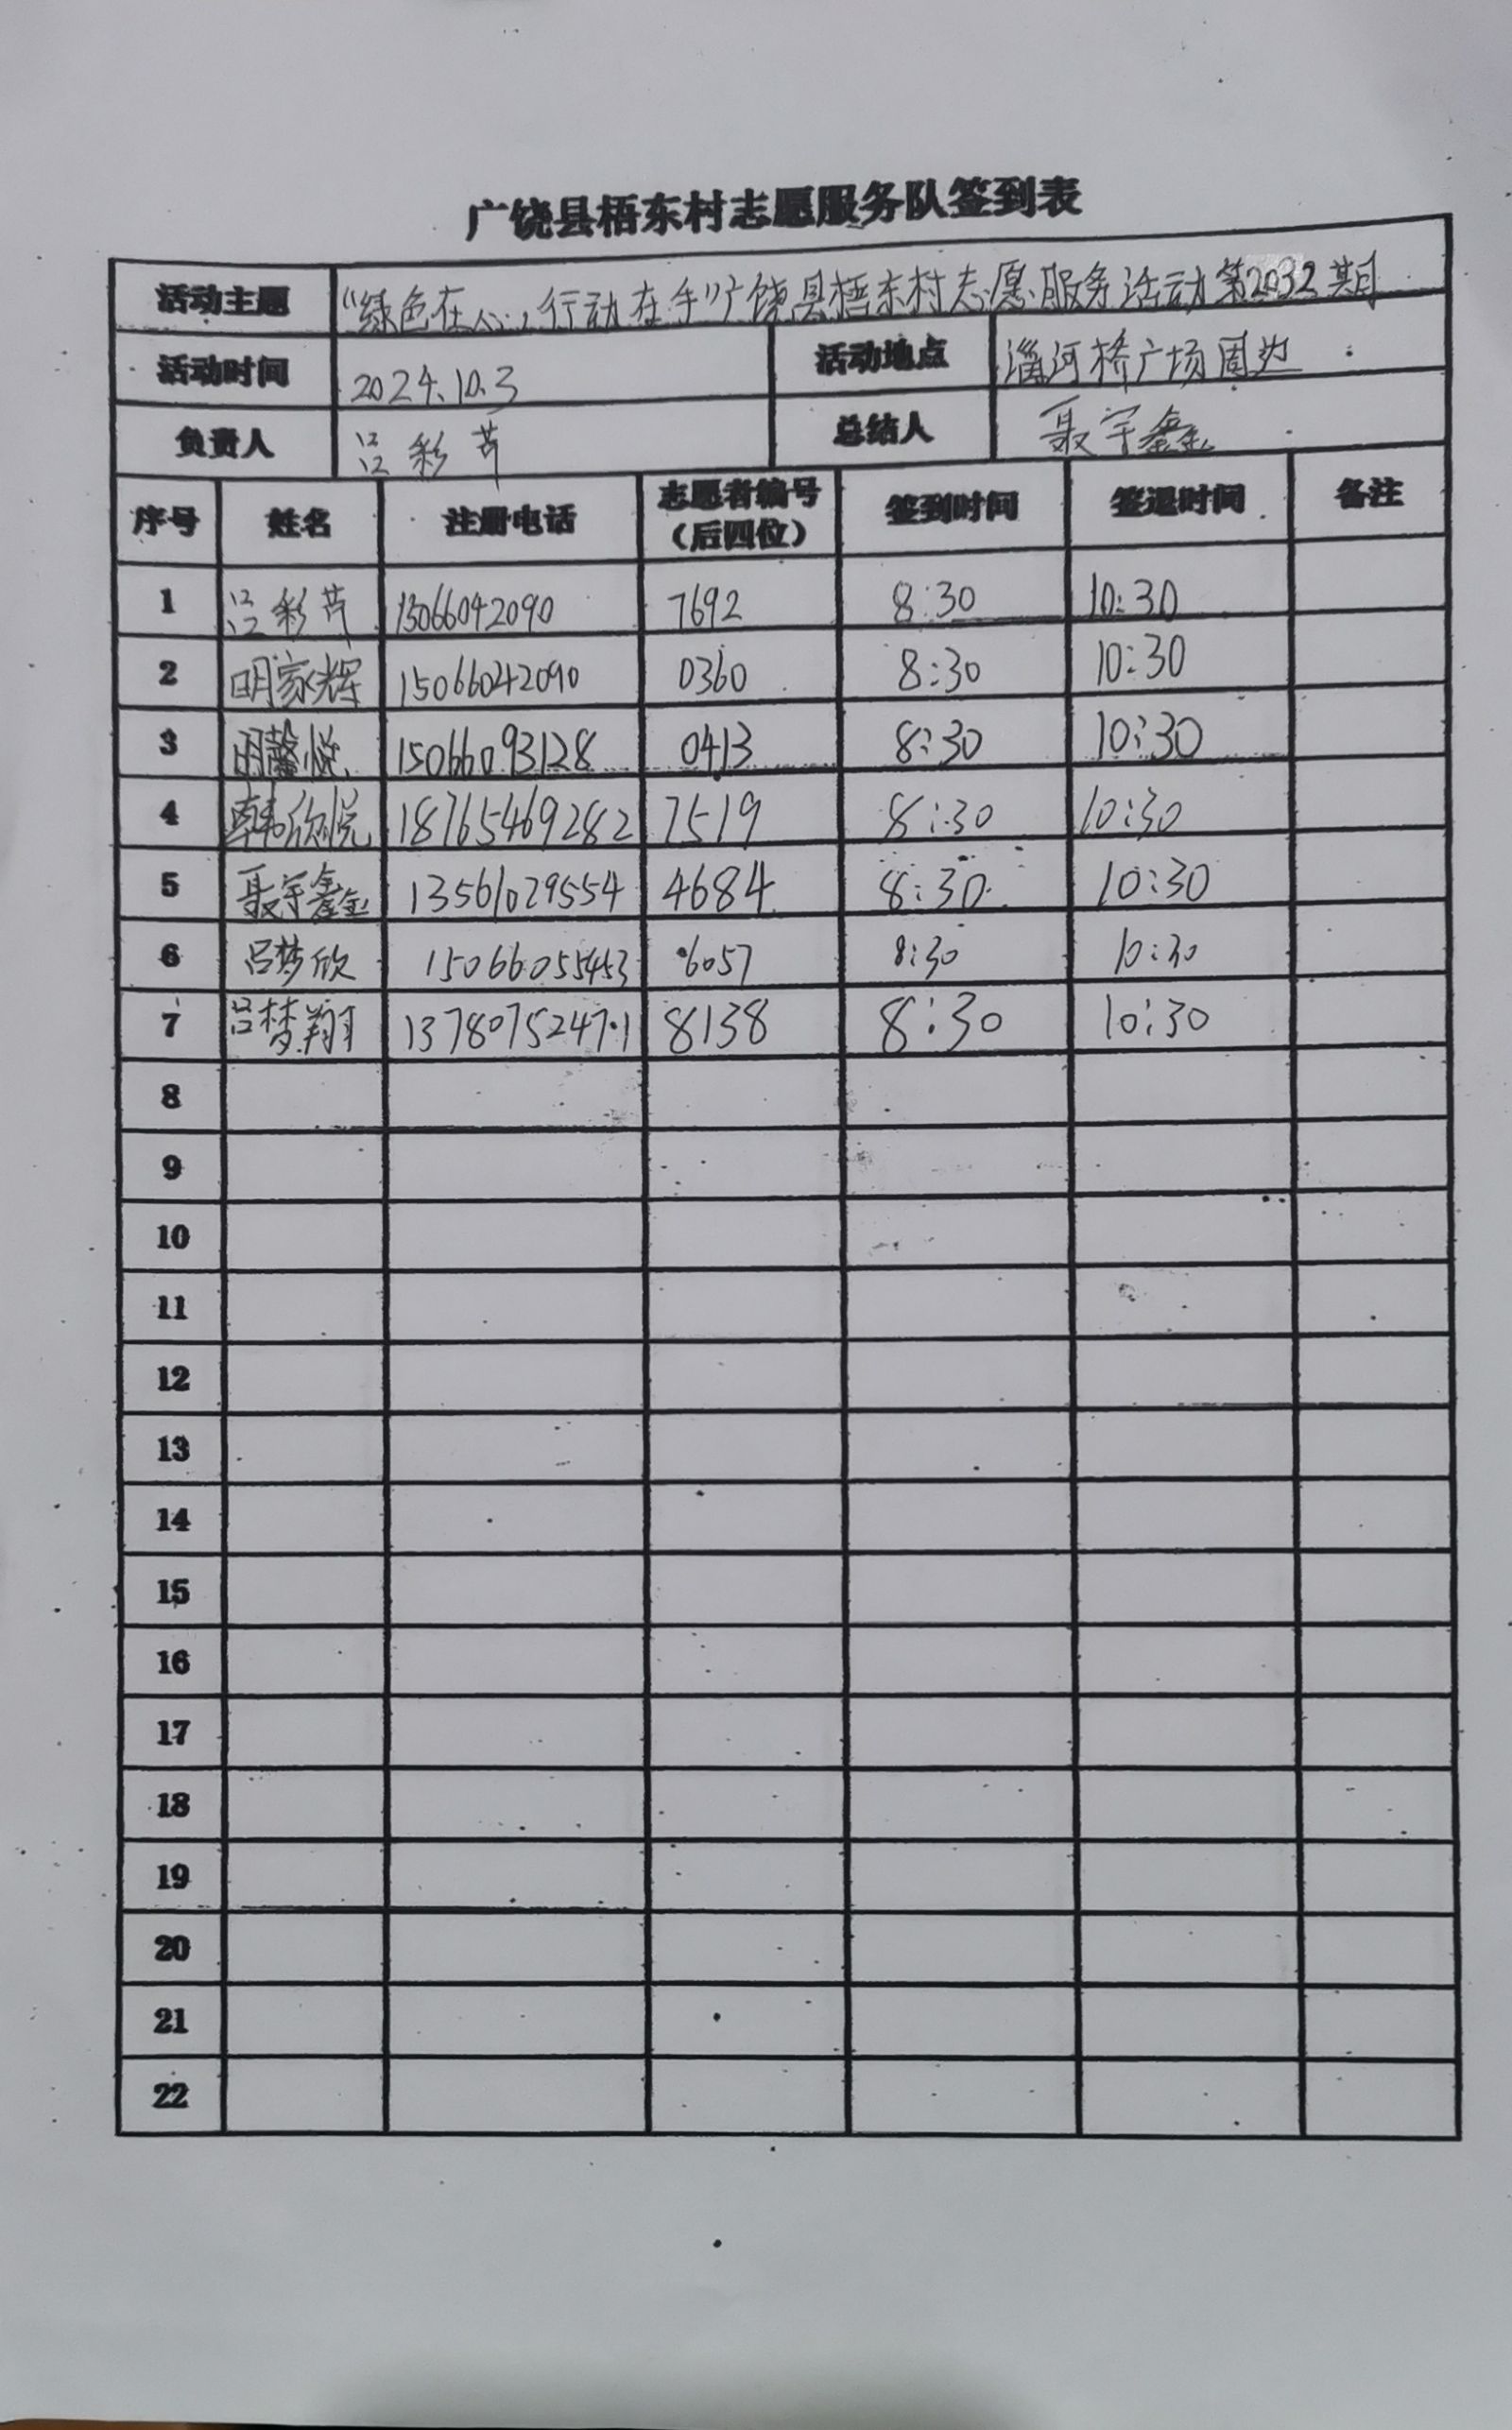 广饶县梧东村志愿服务队签到表
活动主题 “绿色在心,行动在手”广饶县梧东村志愿服务活动第2032期
活动时间 2024.10.3 活动地点 淄河桥广场周边
负责人 吕彩芹 总结人 聂宇鑫
序号 姓名 注册电话 志愿者编号(后四位) 签到时间 签退时间 备注
1 吕彩芹 15066042090 7692 8:30 10:30
2 明家辉 15066042090 0360 8:30 10:30
3 明馨悦 15066093128 0413 8:30 10:30
4 韩欣悦 18765469282 7519 8:30 10:30
5 聂宇鑫 13561029554 4684 8:30 10:30
6 吕梦欣 15066055453 6057 8:30 10:30
7 吕梦翔 13780752471 8138 8:30 10:30
8
9
10
11
12
13
14
15
16
17
18
19
20
21
22